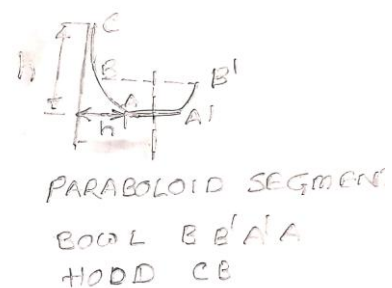 C
h
B
B'
A
A'
h
PARABOLOID SEGMEN
BOWL B B' A' A
HOOD CB